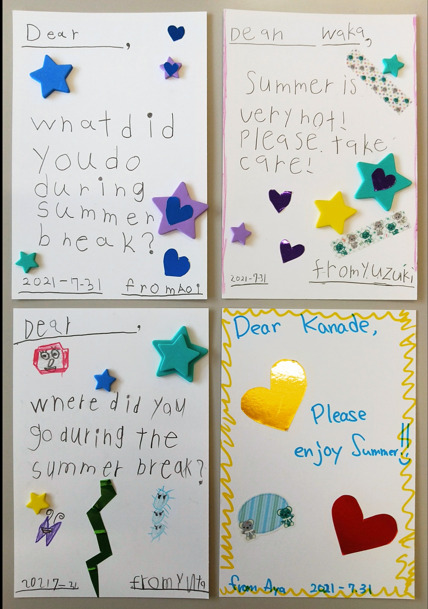 Dear      ,
what did
you do
during
summer
break?
2021-7-31 from Aoi
Dean waka,
Summer is
very hot!
please. take
care!
2021-7-31
from Yuzuki
Dear      .
where did you
go during the
summer break?
2021 7-31 from Yuta
Dear Kanade,
Please
enjoy Summer!!
from Aya 2021-7.31